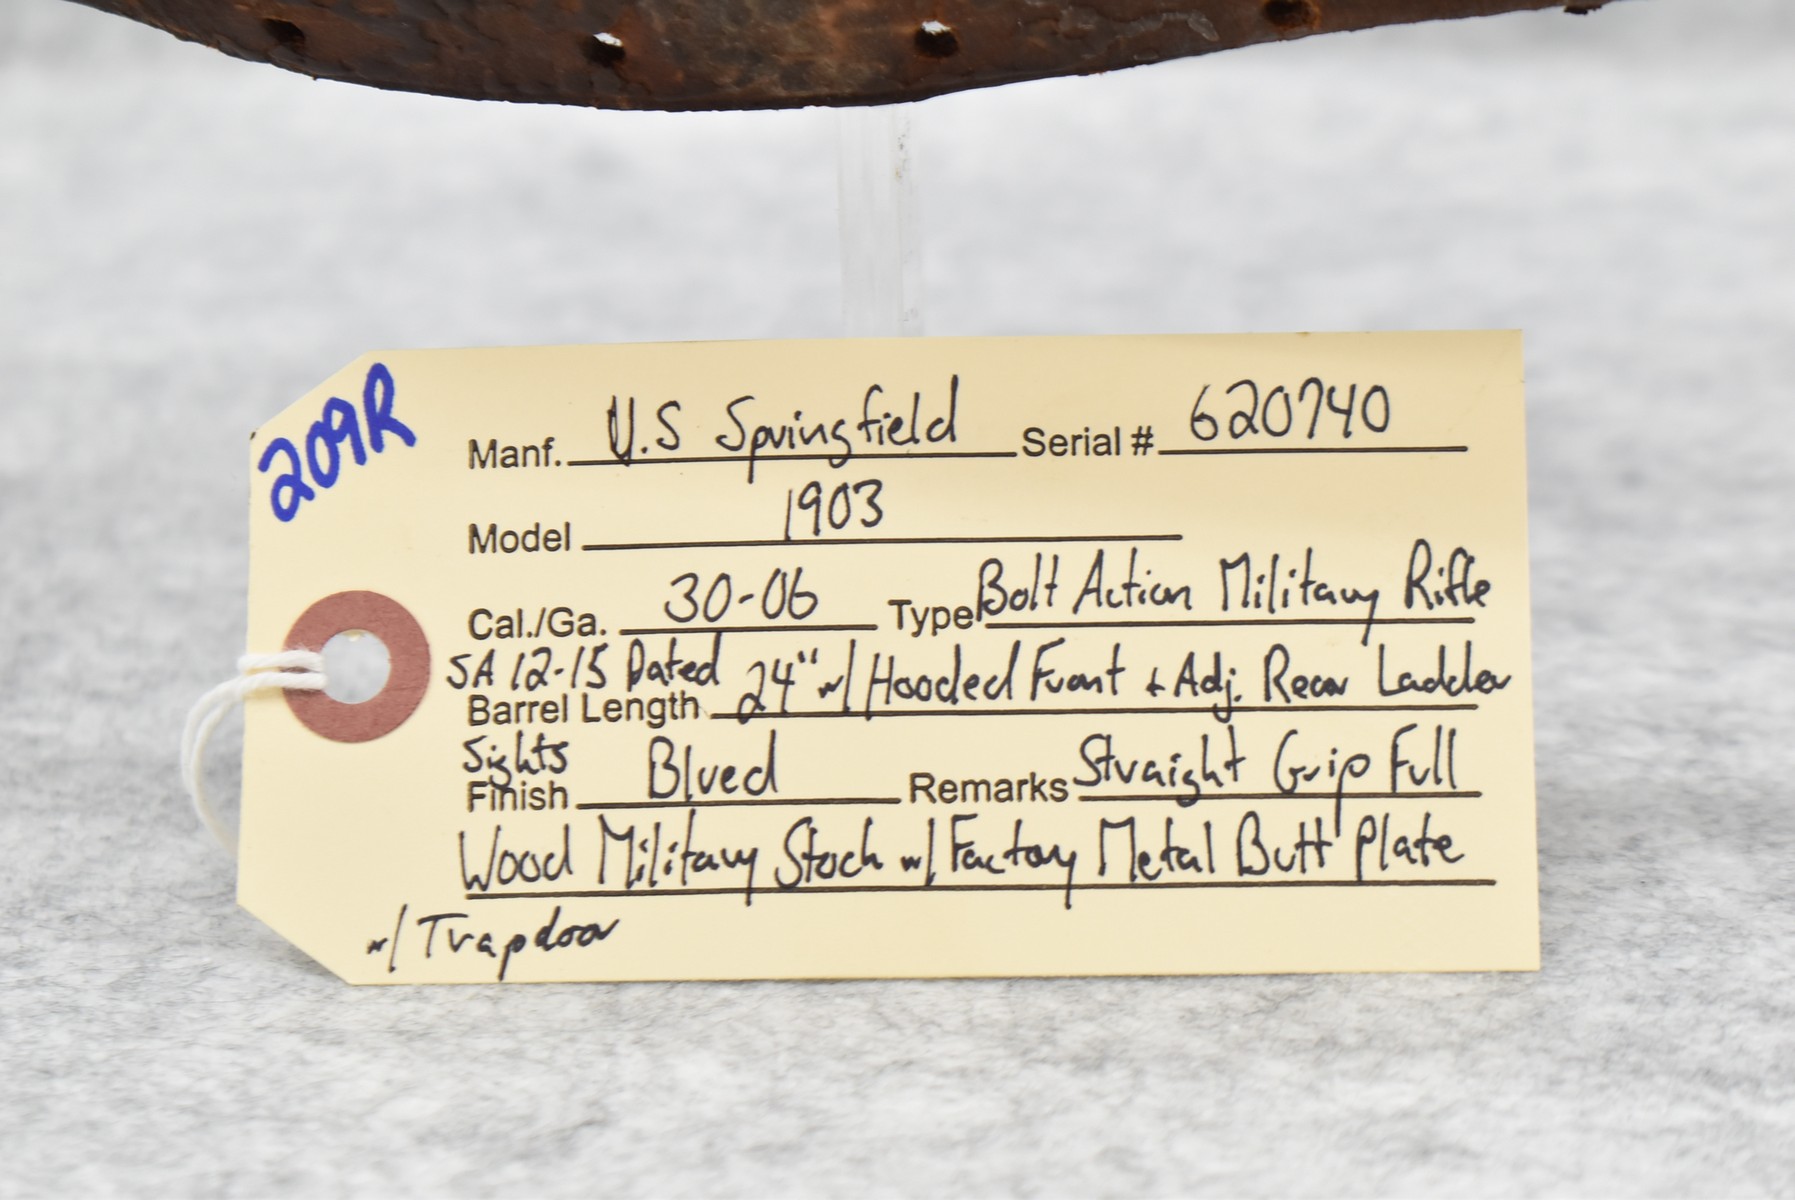 209R
Manf. U.S Springfield Serial # 620740
Model 1903
Cal./Ga. 30-06 Type Bolt Action Military Rifle
SA 12-15 Dated
Barrel Length 24" w/ Hooded Front + Adj. Rear Ladder
Sights
Finish Blued Remarks Straight Grip Full
Wood Military Stock w/ Factory Metal Butt Plate
w/ Trapdoor